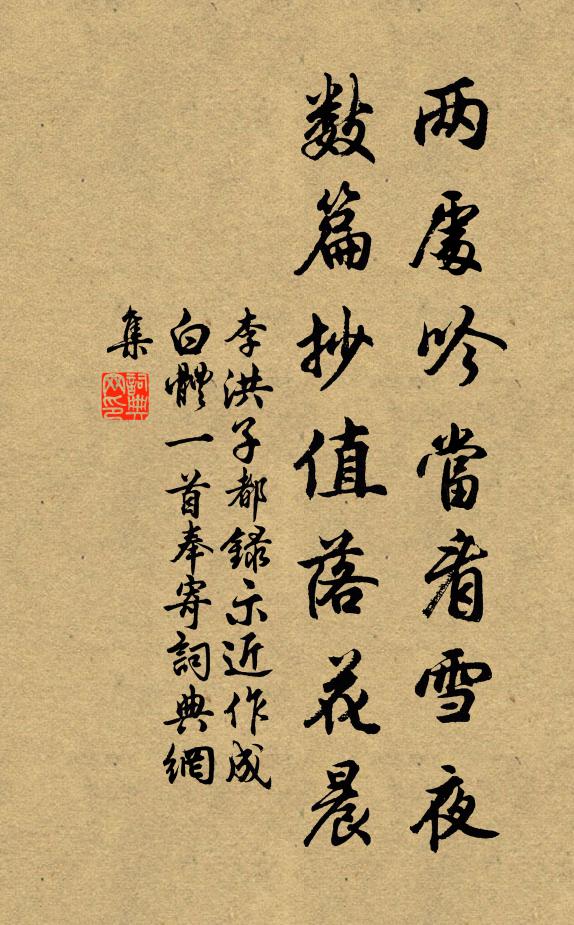 两處吟當看雪夜
數篇抄值落花晨
李洪子都錄示近作成
白體一首奉寄詞典網
集
詞典網印